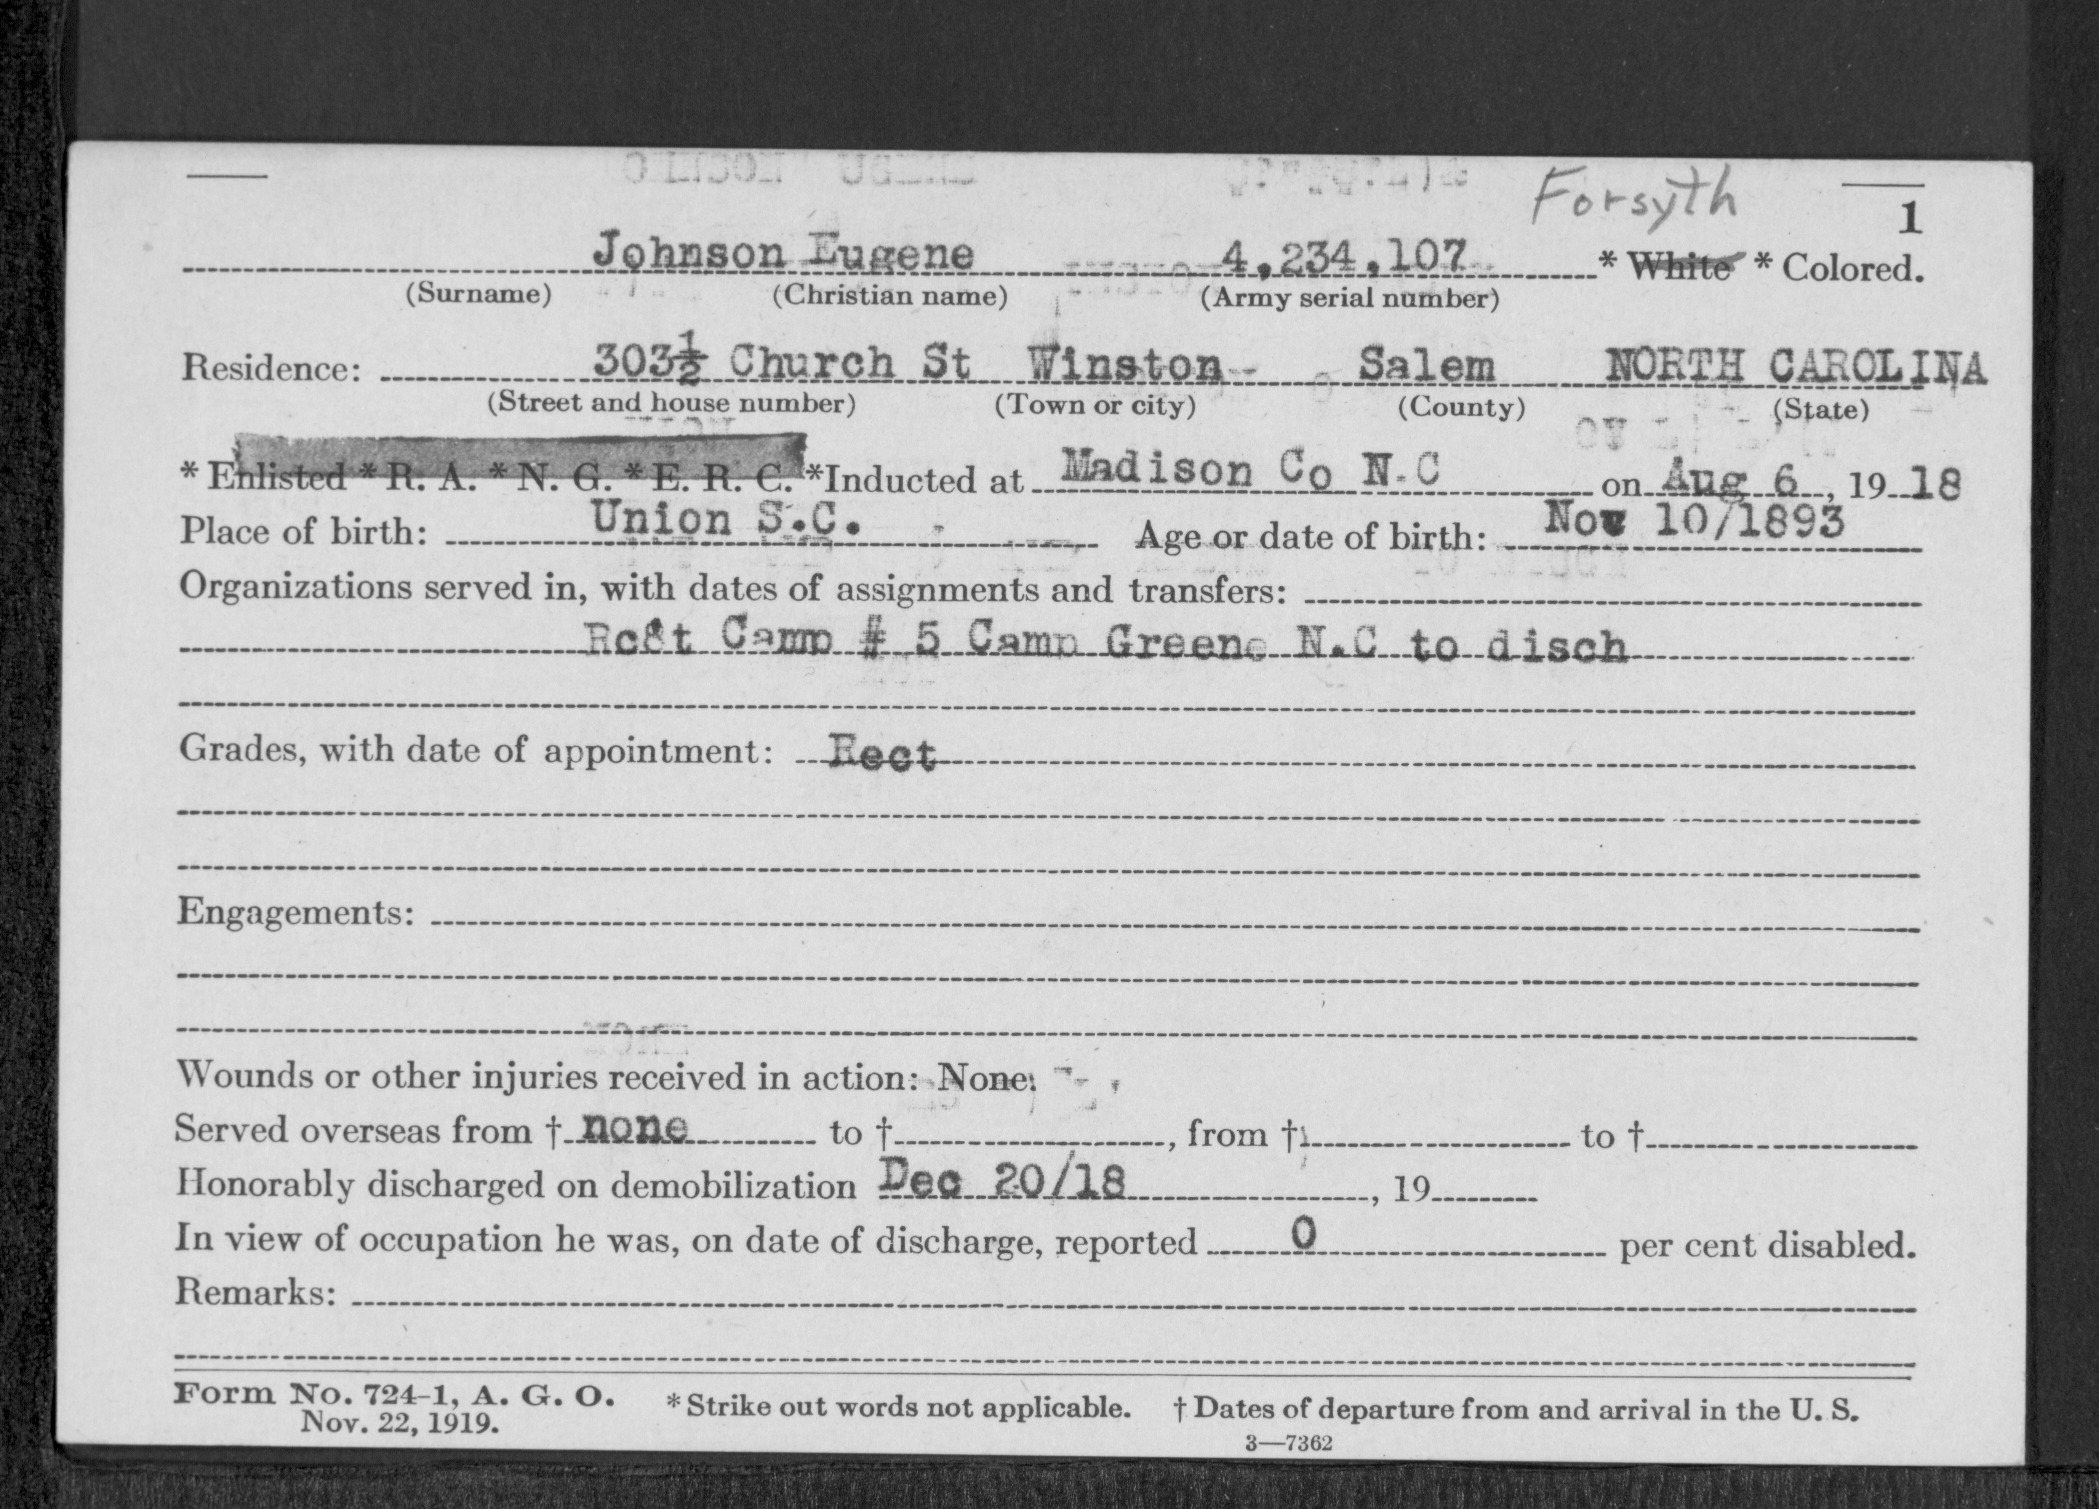 Forsyth
1
Johnson Eugene 4,234,107 * White * Colored.
(Surname) (Christian name) (Army serial number)
Residence: 303½ Church St Winston- Salem NORTH CAROLINA
(Street and house number) (Town or city) (County) (State)
* Enlisted * R. A. * N. G. * E. R. C. *Inducted at Madison Co N.C on Aug 6, 19 18
Place of birth: Union S.C. Age or date of birth: Nov 10/1893
Organizations served in, with dates of assignments and transfers:
Camp # 5 Camp Greene N.C to disch
Grades, with date of appointment: Rect
Engagements:
Wounds or other injuries received in action: None.
Served overseas from † none to †, from † to †
Honorably discharged on demobilization Dec 20/18, 19
In view of occupation he was, on date of discharge, reported 0 per cent disabled.
Remarks:
Form No. 724-1, A. G. O. * Strike out words not applicable. † Dates of departure from and arrival in the U. S.
Nov. 22, 1919.
3—7362